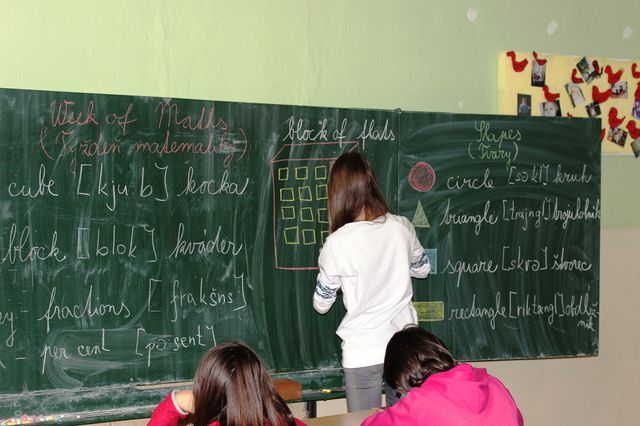 Week of Maths
(Týždeň matematiky)
cube [kju:b] kocka
block [blok] kváder
fractions [frakšns]
per cent [pə sent]
block of flats
Shapes
(Tvary)
circle [səkl] kruh
triangle [trajngl] trojuholník
square [skvə] štvorec
rectangle [riktængl] obdĺž
nik